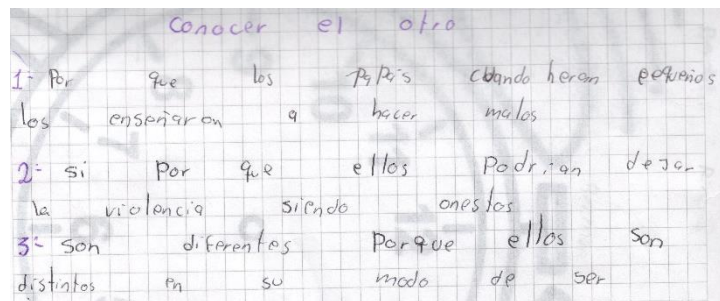 Conocer el otro
1- Por que los papás cuando heren pequeños
los enseñaron a hacer malos
2- si por que ellos Podrian dejar
la violencia siendo onestos
3- Son diferentes Porque ellos son
distintos en su modo de ser